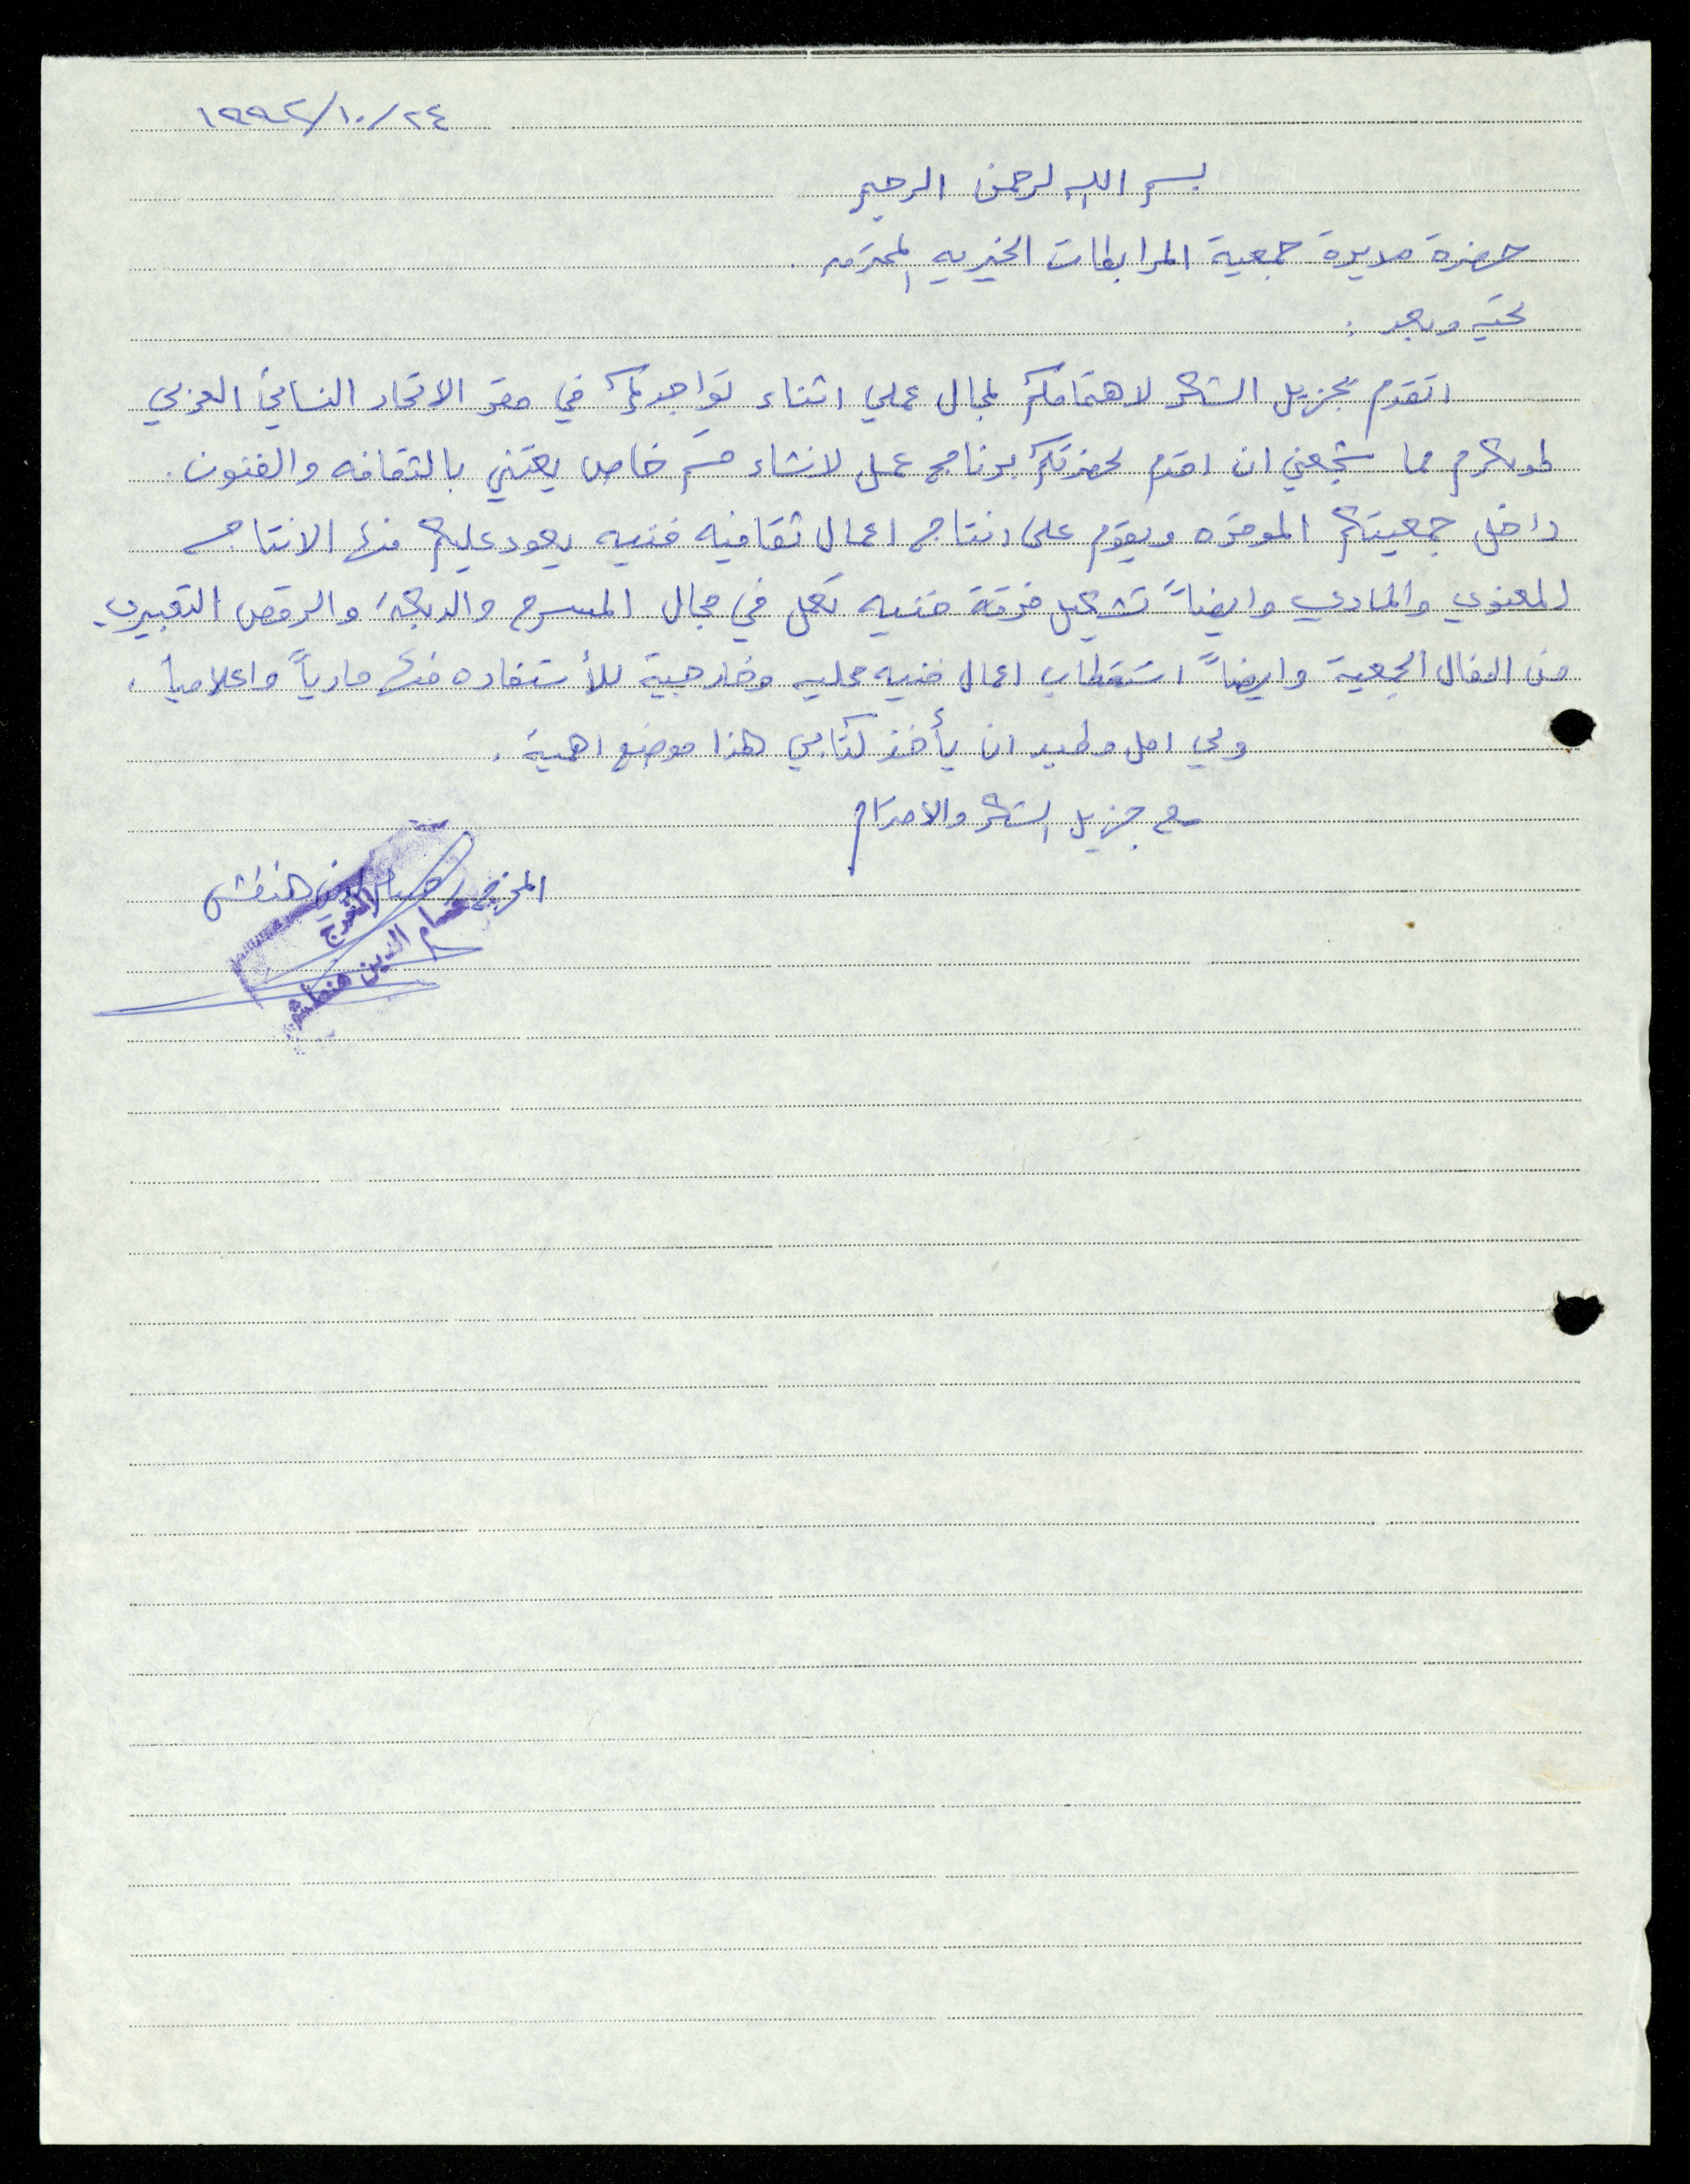 ١٩٩٢/١٠/٢٤
بسم الله الرحمن الرحيم
حضرة مديرة جمعية المرابطات الخيريه المحترمه .
تحيه وبعد :
اتقدم بجزيل الشكر لاهتمامكم لمجال عملي اثناء تواجدكم في مقر الاتحاد النسائي العربي
طولكرم مما شجعني ان اقدم لحضرتكم برنامج عمل لانشاء قسم خاص يعتني بالثقافه والفنون .
داخل جمعيتكم الموقره ويقوم على انتاج اعمال ثقافيه فنيه يعود عليكم منها الانتاج
المعنوي والمادي وايضاً تشكيل فرقة فنيه تعمل في مجال المسرح والدبكة والرقص التعبيري
من اطفال الجمعية وايضاً استقطاب اعمال فنيه محليه وخارجية للأستفاده منها مادياً واعلامياً .
ولي امل وطيد ان يأخذ كتابي هذا موضع اهمية .
مع جزيل الشكر والاحترام
المخرج حسام الدين حنفش
المخرج
حسام الدين حنفش